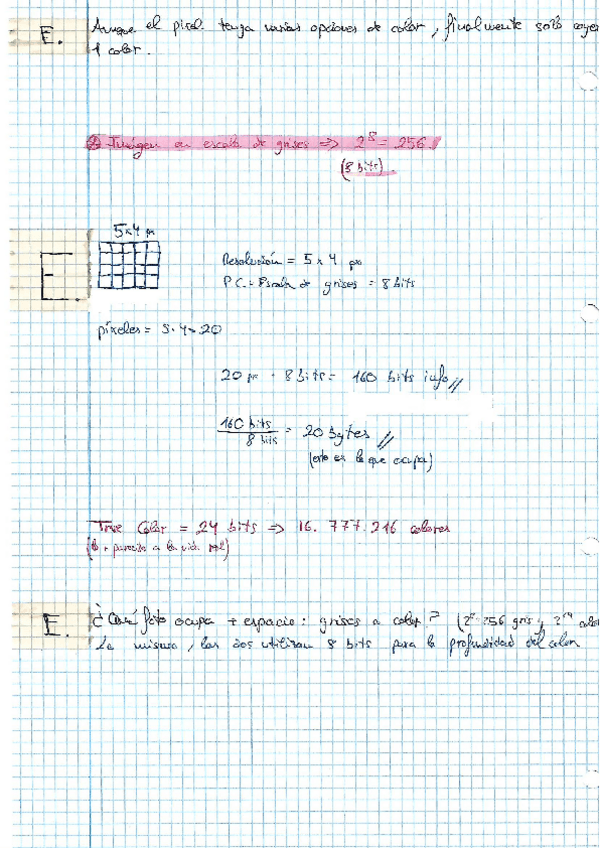 E. Aunque el pixel tenga varias opciones de color, finalmente solo coge
1 color.
Imágen en escala de grises => 2^8 = 256 //
(8 bits)
5x4 px
E. Resolución = 5 x 4 px
P.C. = Escala de grises = 8 bits
píxeles = 5·4 = 20
20 px · 8 bits = 160 bits info //
160 bits / 8 bits = 20 bytes //
(esto es lo que ocupa)
True Color = 24 bits => 16.777.216 colores
(lo + parecido a la vida real)
E. ¿Cuál foto ocupa + espacio: grises o color? (2^8 = 256 gris y 2^24 color
La misma, las dos utilizan 8 bits para la profundidad del color.